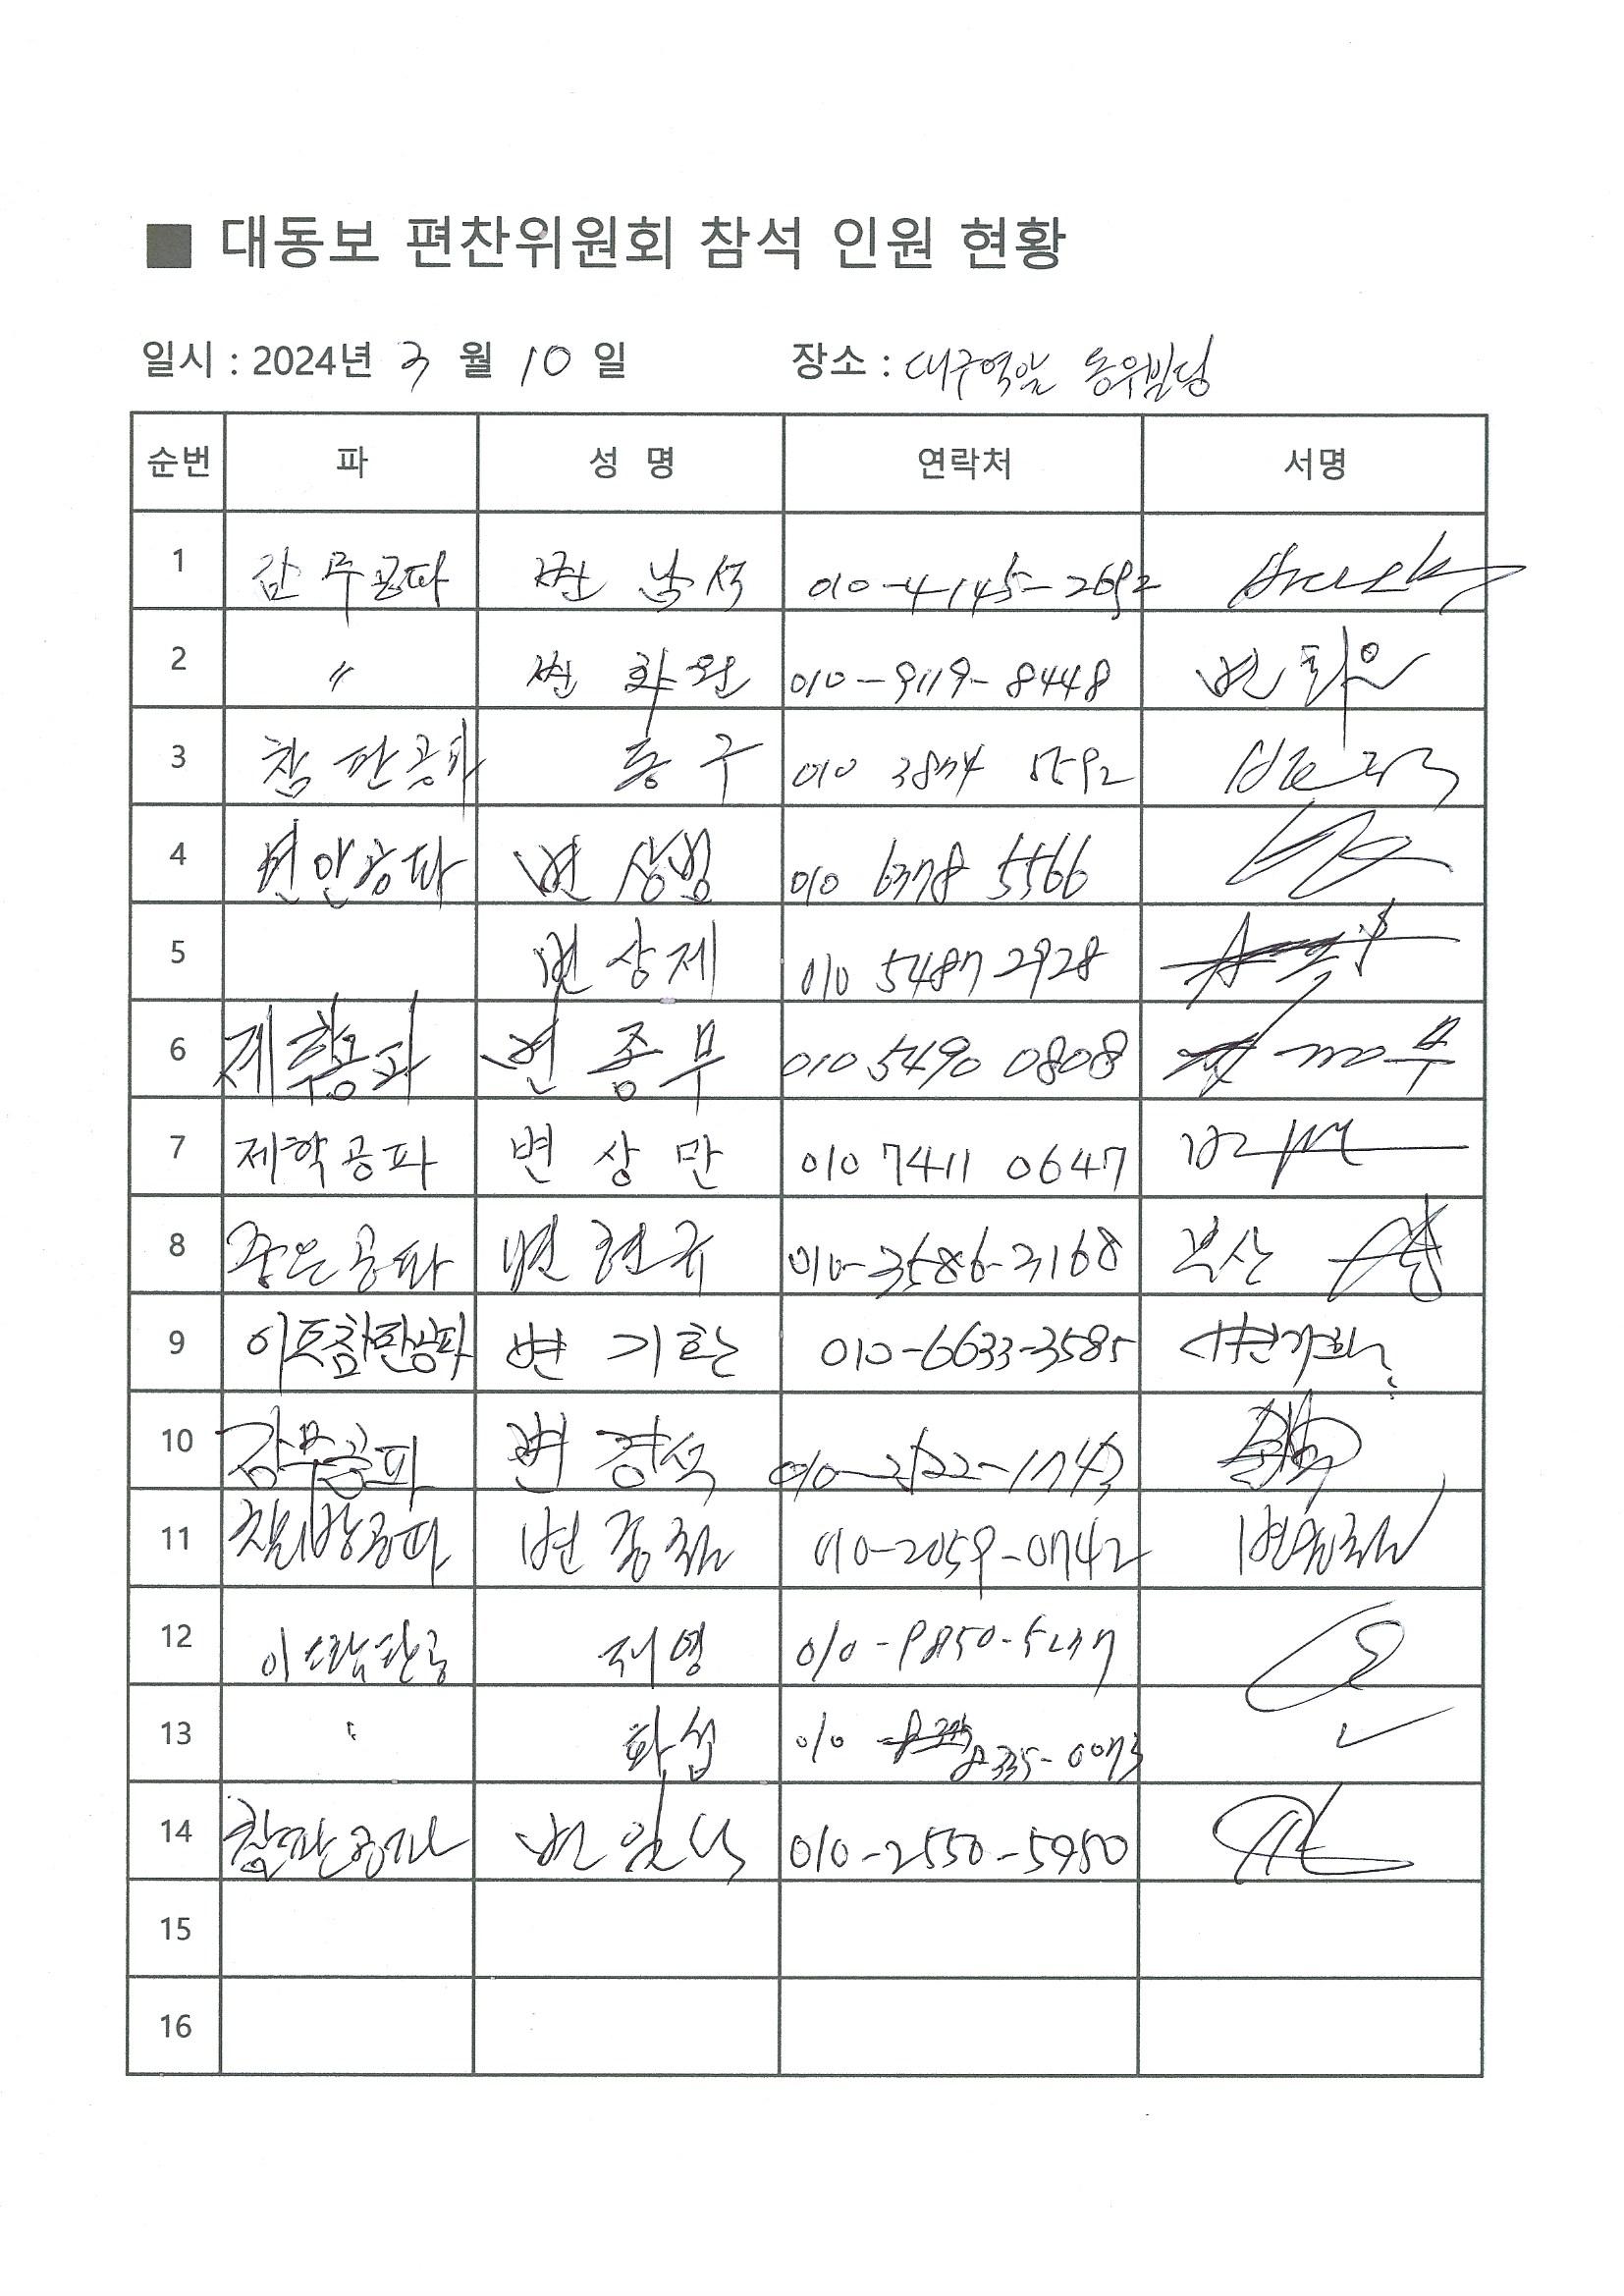 ■ 대동보 편찬위원회 참석 인원 현황
일시 : 2024년 3 월 10 일 장소 : 대구역앞 동우빌딩
순번 파 성 명 연락처 서명
1 감무공파 변 남석 010-4145-2692
2 〃 변 화원 010-9119-8448
3 참판공파 동구 010 3874
4 변 상범 010 6378 5566
5 변 상제 010 5487 2928
6 제학공파 변 종무 010 5490 0808
7 제학공파 변 상 만 010 7411 0647
8 공파 변 현규 010-3586-3168 부산
9 이토참판공파 변 기환 010-6633-3585 변기환
10 감무공파 변 경석
11 공파 변 010-2059-0742
12 재영 010-9850-
13 〃 화섭 010 8335-0073
14 참판공파 변 010-2550-5950
15
16